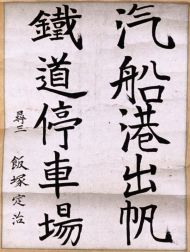 汽船港出帆
鐵道停車場
尋三 飯塚定治